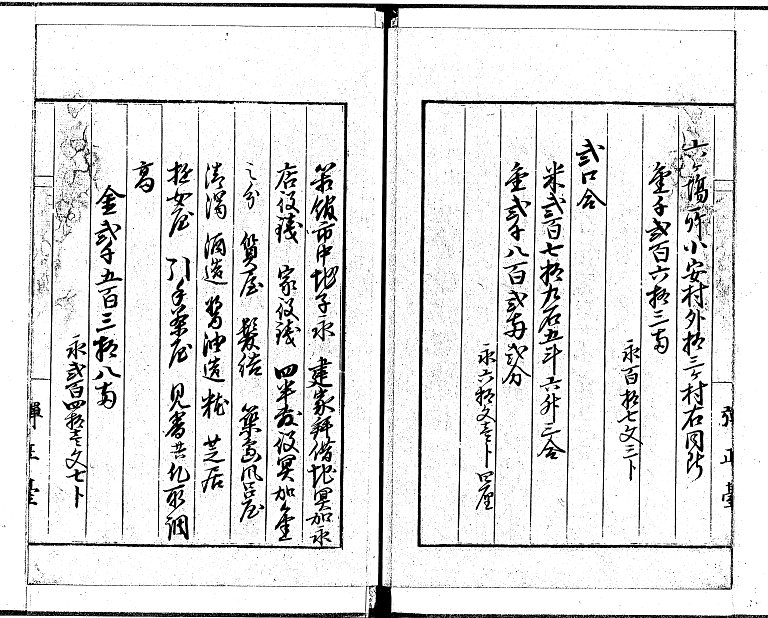 六ヶ場所小安村外拾三ヶ村右同断
金千弐百六拾三両
永百拾七文三ト
弐口合
米弐百七拾九石五斗六升三合
金弐千八百弐両弐分
永六拾文壱ト四厘
弾正臺
箱館市中地子永 建家拝借地冥加永
店役銭 家役銭 四半敷役冥加金
之分 質屋 髪結 薬
風呂屋
清濁酒造 醤油造 糀 芝居
遊女屋 引手茶屋 見番共凡取調
高
金弐千五百三拾八両
永弐百四拾壱文七ト
弾正臺